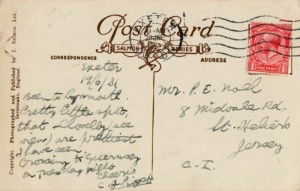 Post Card
SALMON SERIES
CORRESPONDENCE
ADDRESS
Copyright, Photographed and Published by J. Salmon Ltd.
Sevenoaks, England.
Exeter
Been to Lynmouth.
Pretty little spot,
that &
are prettiest
I have seen
Crossing to Guernsey
on Tuesday night
Cheerio
Mr. P. E. Noel
8 Midvale Rd.
St. Heliers
Jersey
C. I.